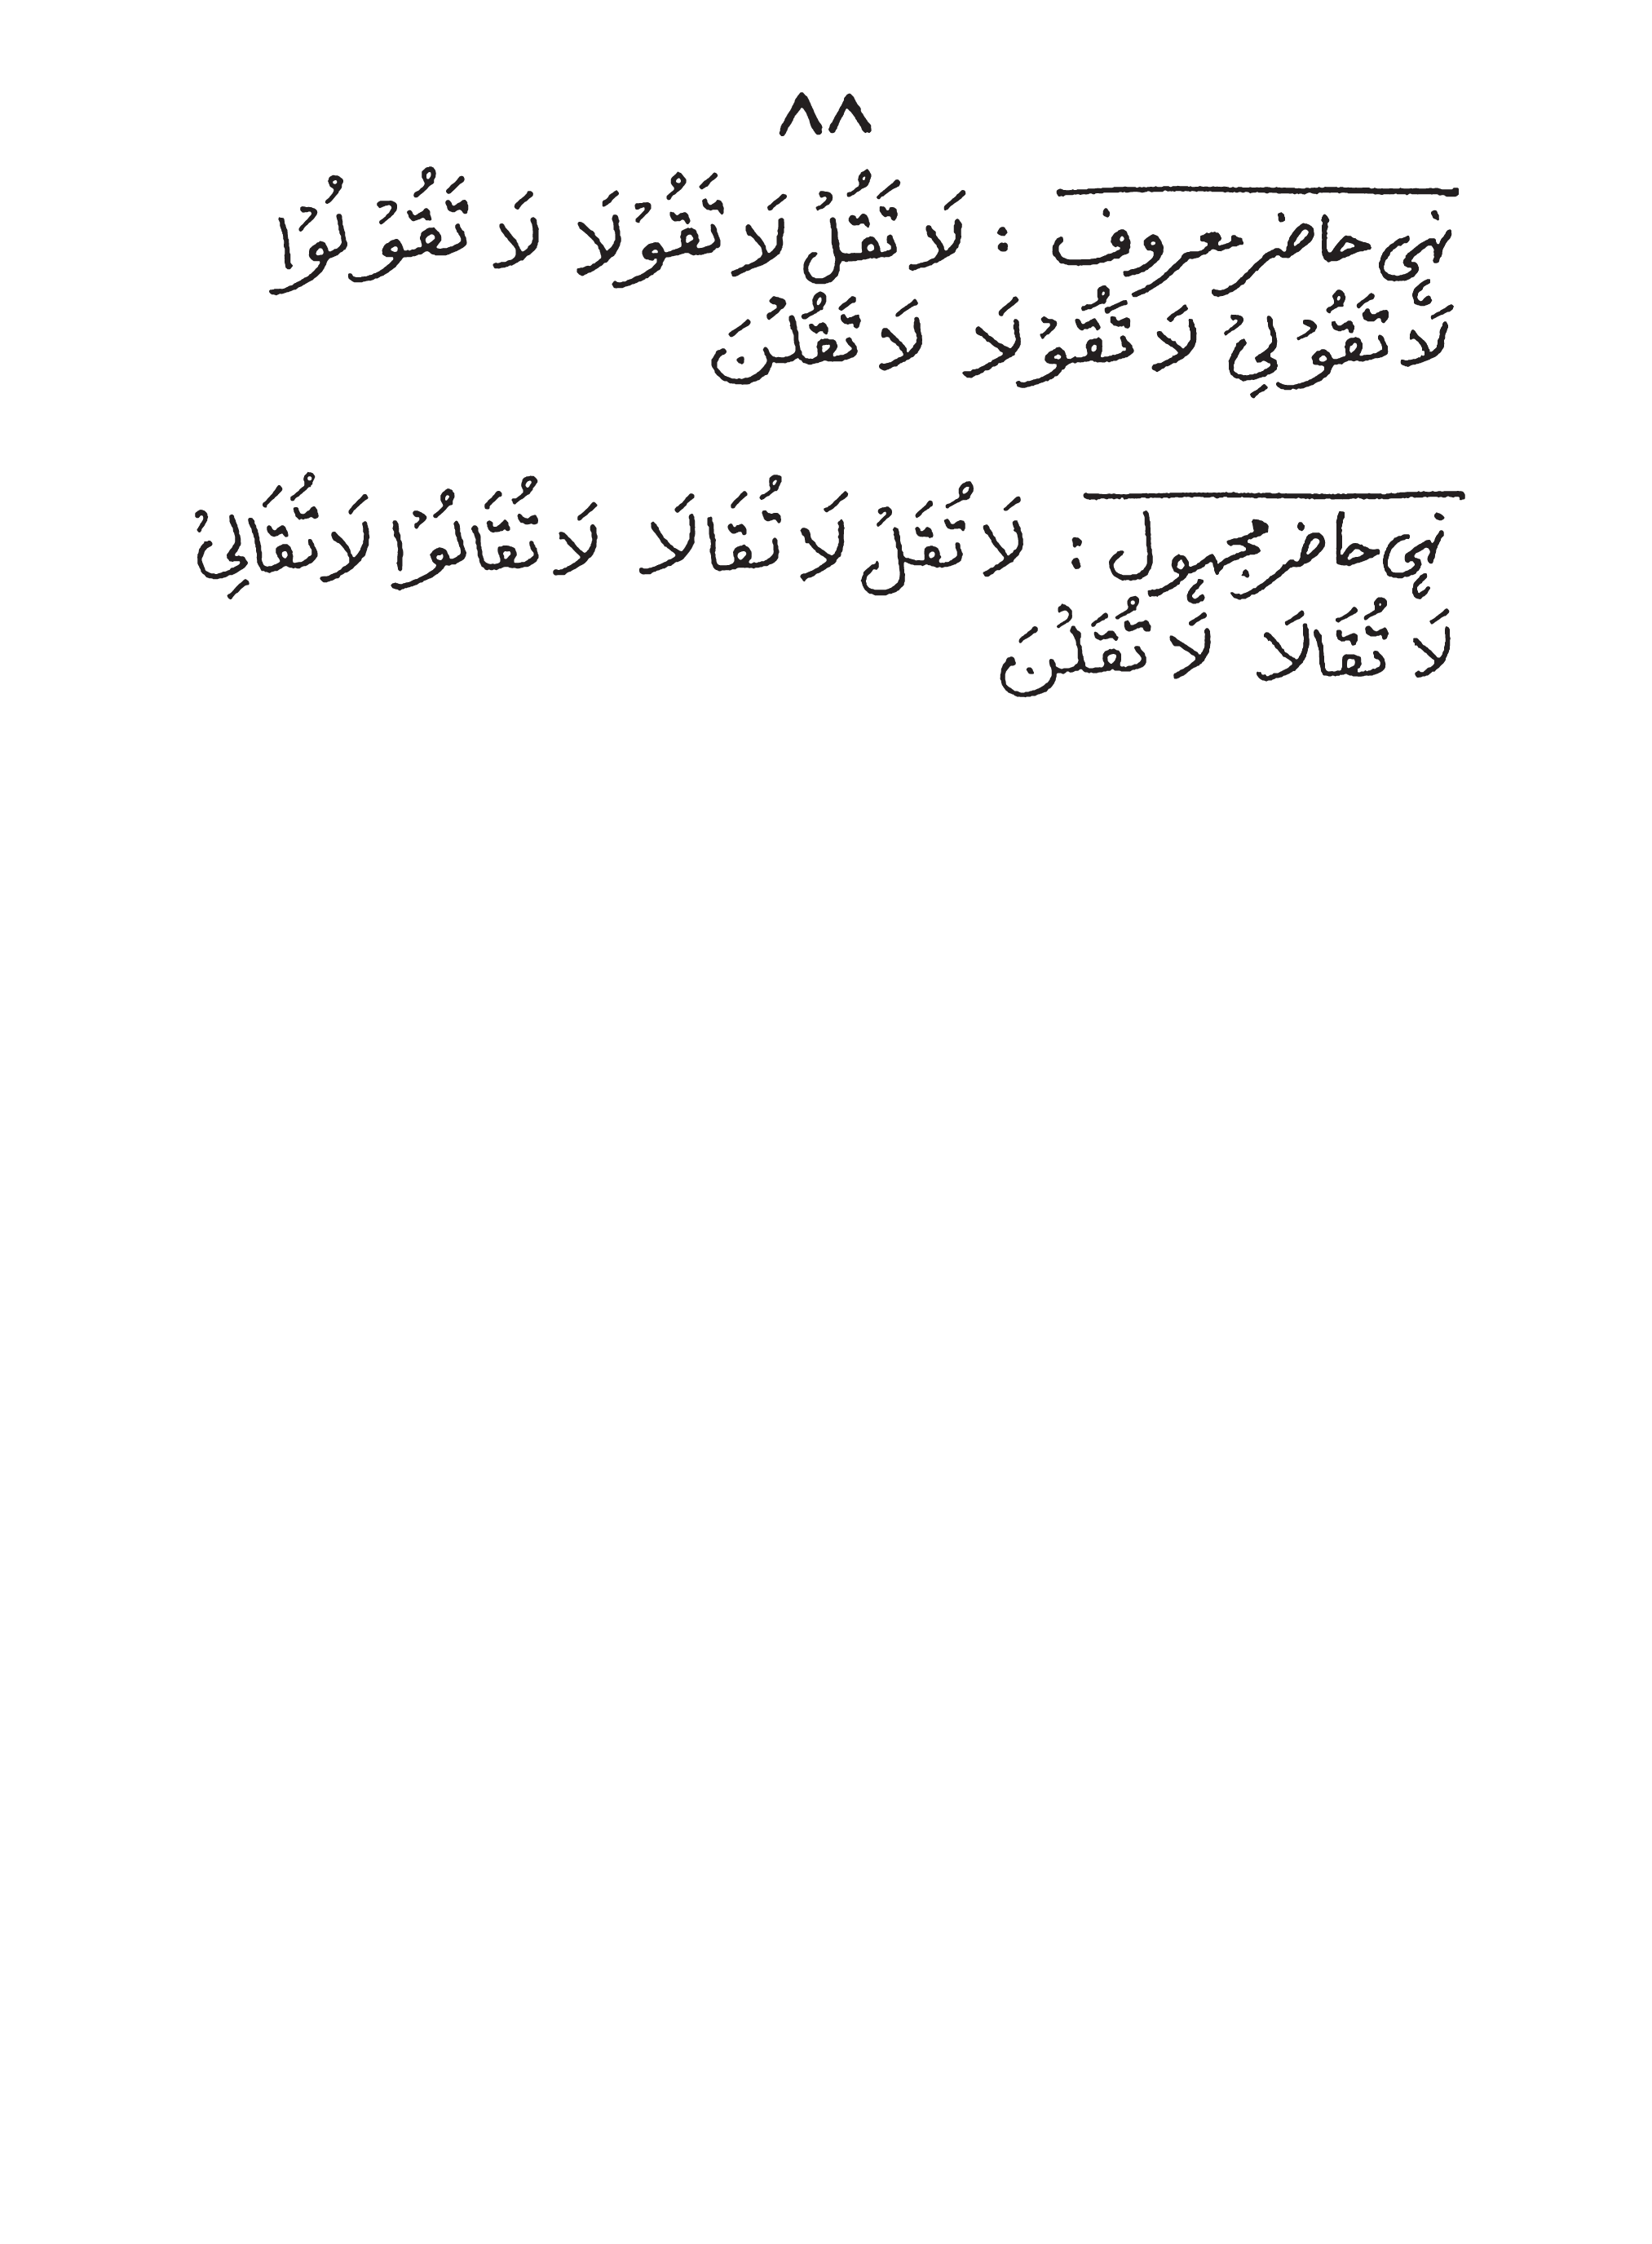 ٨٨
نہی حاضر معروف : لَا تَقُلْ لَا تَقُوْلَا لَا تَقُوْلُوْا
لَا تَقُوْلِيْ لَا تَقُوْلَا لَا تَقُلْنَ
نہی حاضر مجہول : لَا تُقَلْ لَا تُقَالَا لَا تُقَالُوْا لَا تُقَالِيْ
لَا تُقَالَا لَا تُقَلْنَ